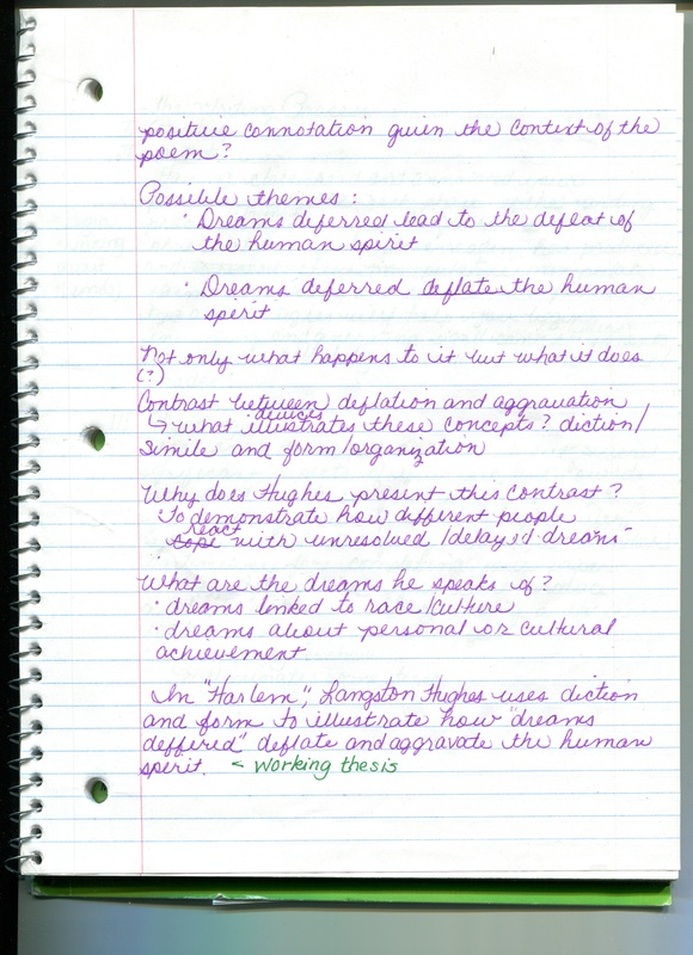 positive connotation given the context of the
poem?
Possible themes:
· Dreams deferred lead to the defeat of
the human spirit
· Dreams deferred deflate the human
spirit
Not only what happens to it but what it does
(?)
Contrast between deflation and aggravation
devices
↳ what illustrates these concepts? diction/
simile and form/organization
Why does Hughes present this contrast?
· To demonstrate how different people
react
cope with unresolved/delayed dreams
What are the dreams he speaks of?
· dreams linked to race/culture
· dreams about personal or cultural
achievement
In "Harlem", Langston Hughes uses diction
and form to illustrate how "dreams
deffered" deflate and aggravate the human
spirit. < working thesis